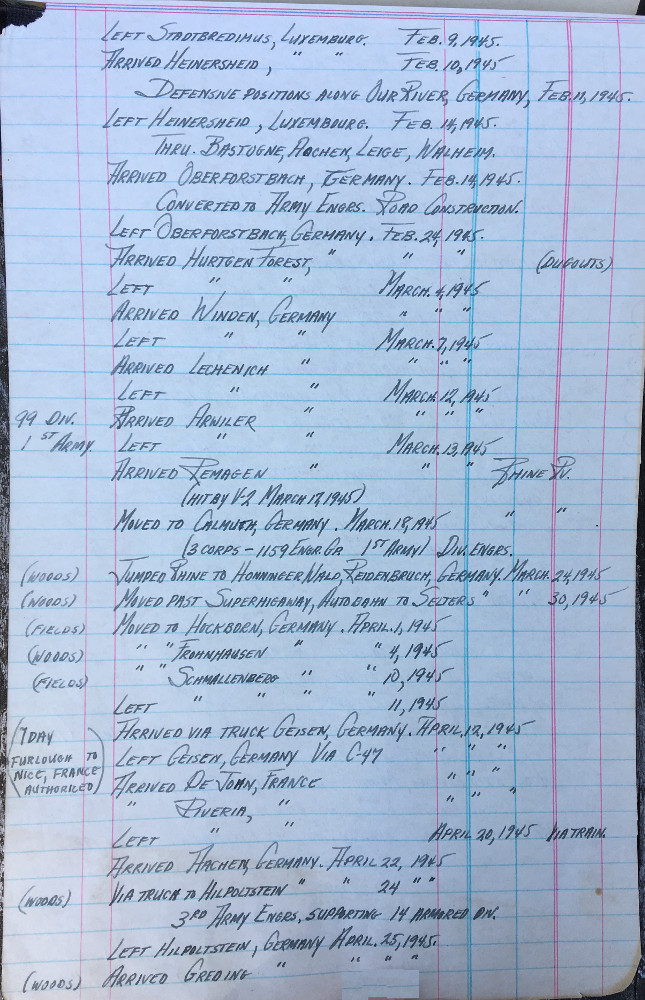 LEFT STADTBREDIMUS, LUXEMBURG. FEB. 9, 1945.
ARRIVED HEINERSHEID, " " FEB. 10, 1945
DEFENSIVE POSITIONS ALONG OUR RIVER, GERMANY, FEB. 11, 1945.
LEFT HEINERSHEID, LUXEMBOURG. FEB. 14, 1945.
THRU. BASTOGNE, AACHEN, LEIGE, WALHEIM.
ARRIVED OBERFORSTBACH, GERMANY. FEB. 14, 1945.
CONVERTED TO ARMY ENGRS. ROAD CONSTRUCTION.
LEFT OBERFORSTBACH, GERMANY. FEB. 24, 1945.
ARRIVED HURTGEN FOREST, " " " (DUGOUTS)
LEFT " " MARCH. 4, 1945
ARRIVED WINDEN, GERMANY " " "
LEFT " " MARCH. 7, 1945
ARRIVED LECHENICH " " " "
LEFT " " MARCH. 12, 1945
99 DIV. ARRIVED ARWILER " " " "
1ST ARMY LEFT " " MARCH. 13, 1945
ARRIVED REMAGEN " " " RHINE RV.
(HIT BY V-2 MARCH 17, 1945)
MOVED TO CALMUTH, GERMANY. MARCH. 18, 1945 " "
(3 CORPS - 1159 ENGR. GR 1ST ARMY) DIV. ENGRS.
(WOODS) JUMPED RHINE TO HONNINGER WALD, REIDENBRUCH, GERMANY. MARCH. 24, 1945
(WOODS) MOVED PAST SUPERHIGAWAY, AUTOBAHN TO SELTERS " " 30, 1945
(FIELDS) MOVED TO HOCKBORN, GERMANY. APRIL. 1, 1945
(WOODS) " " FROHNHAUSEN " " 4, 1945
(FIELDS) " " SCHMALLENBERG " " 10, 1945
LEFT " " " " 11, 1945
(7 DAY ARRIVED VIA TRUCK GEISEN, GERMANY. APRIL, 12, 1945
FURLOUGH TO LEFT GEISEN, GERMANY VIA C-47 " " "
NICE, FRANCE ARRIVED DE JOHN, FRANCE " " "
AUTHORICED) " RIVERIA, " " " "
LEFT " " APRIL 20, 1945 VIA TRAIN.
ARRIVED AACHEN, GERMANY. APRIL 22, 1945
(WOODS) VIA TRUCK TO HILPOLTSTEIN " " 24 " "
3RD ARMY ENGRS, SUPPORTING 14 ARMORED DIV.
LEFT HILPOLTSTEIN, GERMANY APRIL. 25, 1945.
(WOODS) ARRIVED GREDING " " " "